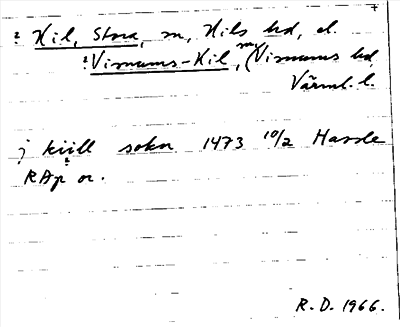 ? Kil, Stora, sn, Kils hd, el.
? Visnums-Kil, sn, (Visnums hd,
Värml. l.
j kiill sokn 1473 10/2 Hassle
RAp or.
R. D. 1966.